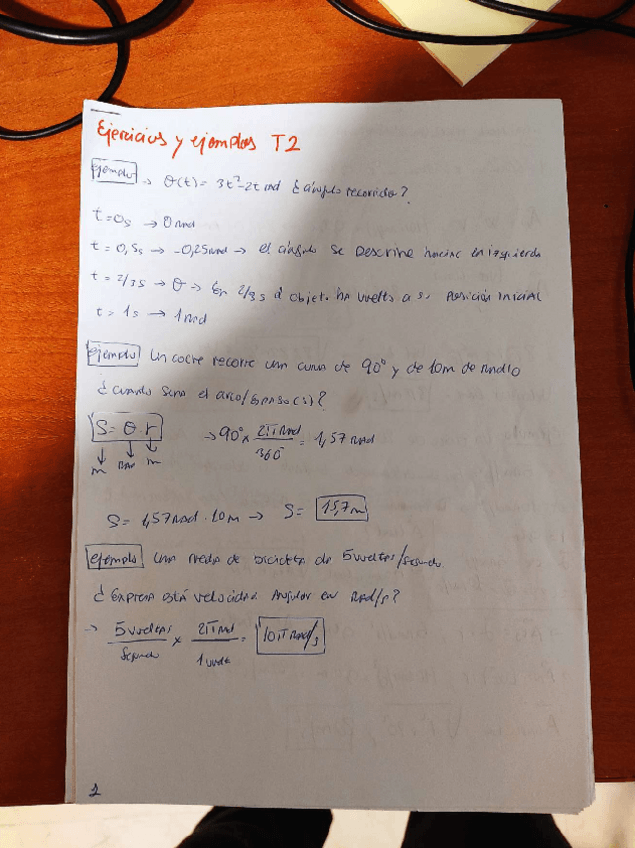 Ejercicios y ejemplos T2
Ejemplo → θ(t) = 3t²-2t rad ¿ángulo recorrido?
t=0s → 0 rad
t = 0,5s → -0,25rad → el ángulo se describe hacia la izquierda
t = 2/3s → θ → En 2/3s el objeto ha vuelto a su posición inicial
t = 1s → 1 rad
Ejemplo Un coche recorre una curva de 90° y de 10m de radio
¿cuanto sera el arco/espaso(s)?
S = θ · r → 90° × 2π rad / 360° = 1,57 rad
m rad m
S = 1,57 rad · 10m → S = 15,7m
ejemplo una rueda de bicicleta da 5 vueltas/segundo.
¿Expresa está velocidad Angular en Rad/s?
→ 5 vueltas / segundo × 2π rad / 1 vuelta = 10π rad/s
1